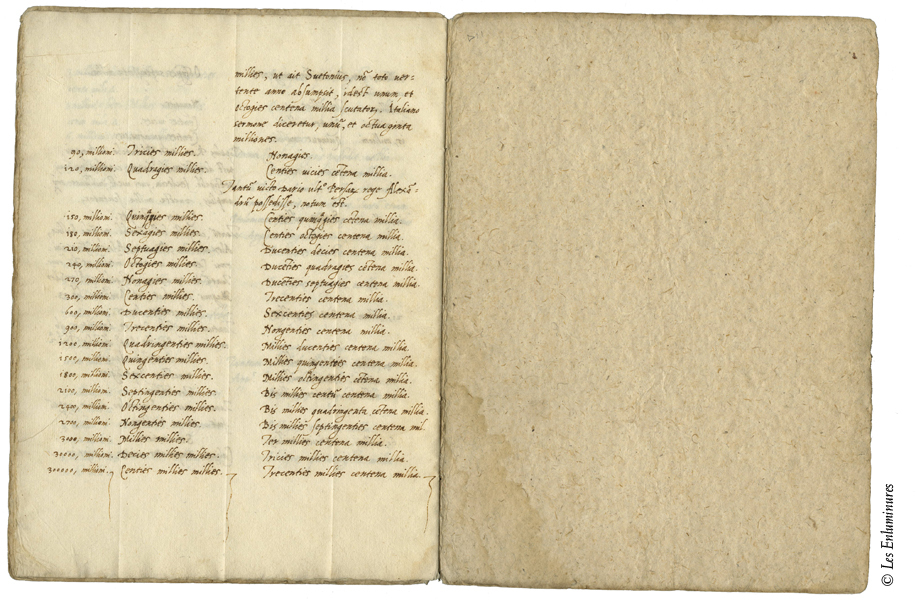 millies, ut ait Suetonius, nō toto ver-
tente anno absumpsit, idest unum et
octogies centena millia scutator. Italiano
sermone diceretur, unū, et octuaginta
milliones.
90, millioni. Tricies millies. Nonagies.
120, millioni. Quadragies millies. Centies vicies cētena millia.
Tantū victo Dario ultº Persiæ rege Alexā-
drū possedisse, notum est.
150, millioni. Quinqgies millies. Centies quinqgies cētena millia.
180, millioni. Sexagies millies. Centies octogies centena millia.
210, millioni. Septuagies millies. Ducenties decies centena millia.
240, millioni. Octogies millies. Ducēties quadragies cētena millia.
270, millioni. Nonagies millies. Ducēties septuagies centena millia.
300, millioni. Centies millies. Trecenties centena millia.
600, millioni. Ducenties millies. Sexcenties centena millia.
900, millioni. Trecenties millies. Nongenties centena millia.
1200, millioni. Quadringenties millies. Millies ducenties centena millia
1500, millioni. Quingenties millies. Millies quingenties centena millia.
1800, millioni. Sexcenties millies. Millies octingenties cētena millia.
2100, millioni. Septingenties millies. Bis millies centū centena millia.
2400, millioni. Octingenties millies. Bis millies quadringenta cētena millia.
2700, millioni. Nongenties millies. Bis millies septingenties centena mil.
3000, millioni. Millies millies. Ter millies centena millia.
30000, millioni. Decies millies millies. Tricies millies centena millia.
300000, millioni. Centies millies millies. Trecenties millies centena millia.
© Les Enluminures